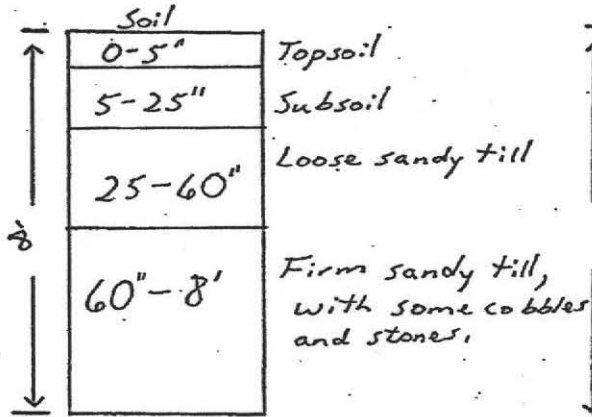 Soil
0-5" Topsoil
5-25" Subsoil
25-60" Loose sandy till
8'
60"-8' Firm sandy till,
with some cobbles
and stones.